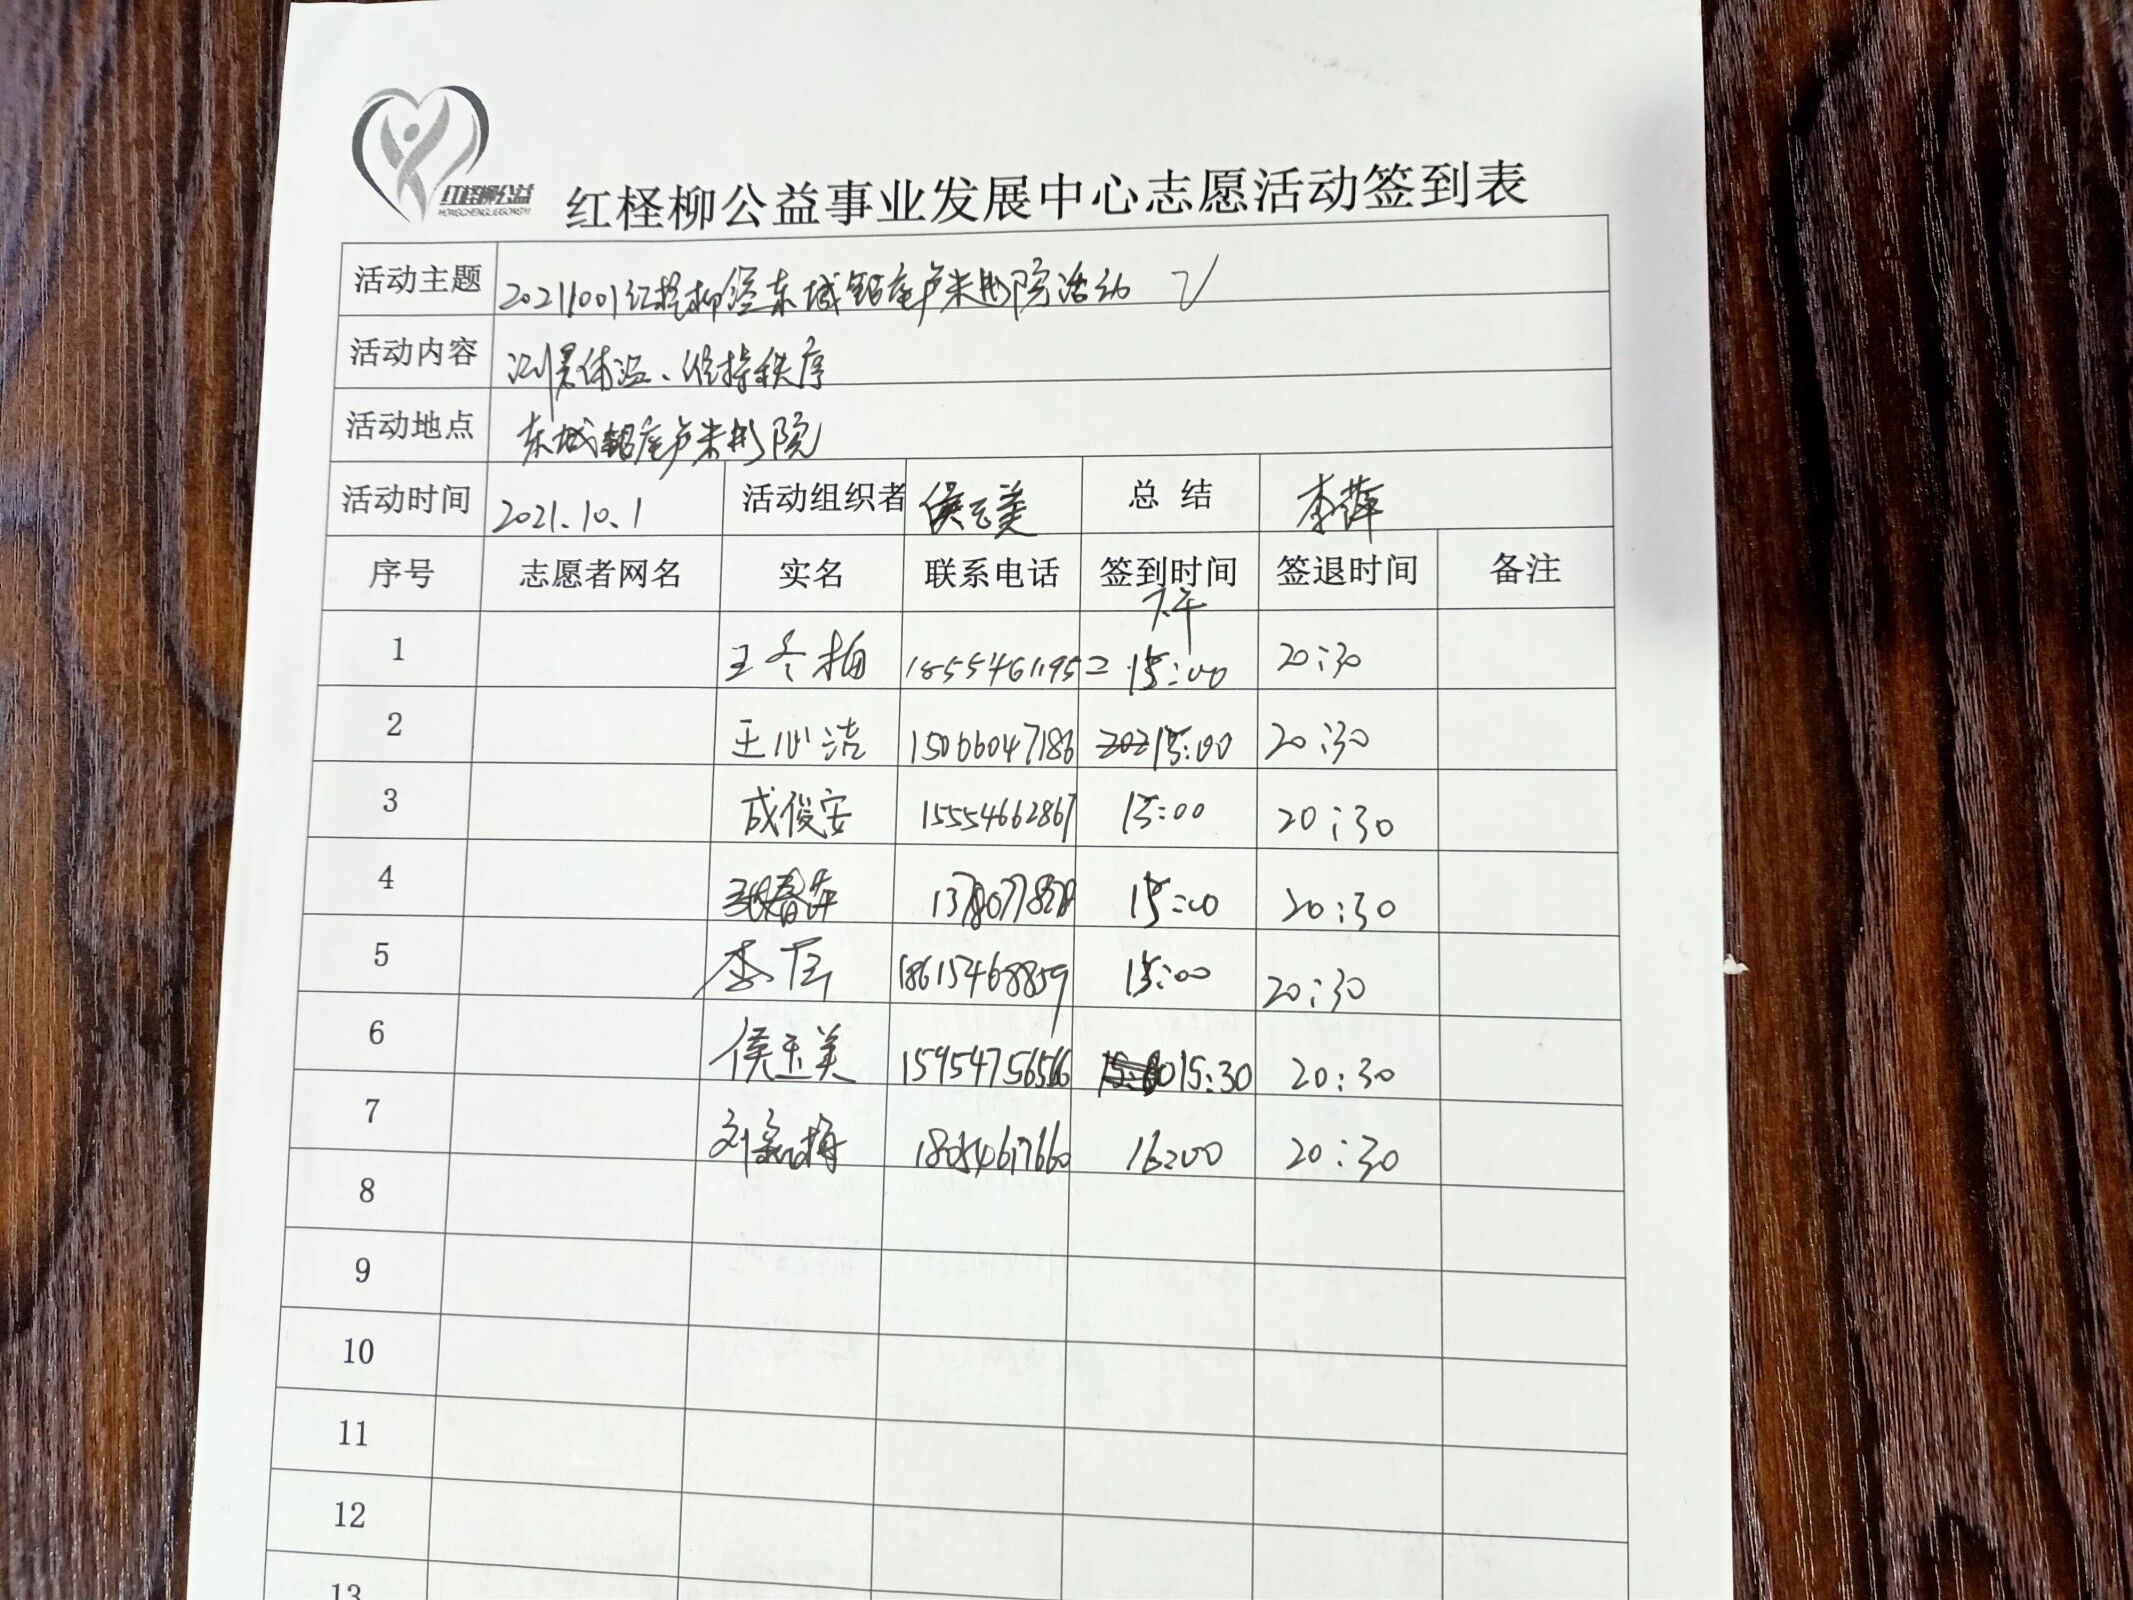 红柽柳公益
HONGCHENGLIUGONGYI
红柽柳公益事业发展中心志愿活动签到表
活动主题 20211001红柽柳 东城银座卢米 影院活动
活动内容 测量体温、维持秩序
活动地点 东城银座卢米影院
活动时间 2021.10.1 活动组织者 侯玉美 总 结 李萍
序号 志愿者网名 实名 联系电话 签到时间 签退时间 备注
下午
1 王冬梅 18554611952 15:00 20:30
2 王心洁 15066047186 15:00 20:30
3 成俊安 15554662867 15:00 20:30
4 张春萍 15:00 20:30
5 李 18615468859 15:00 20:30
6 侯玉美 15954756566 15:30 20:30
7 刘 梅 18054617660 16:00 20:30
8
9
10
11
12
13